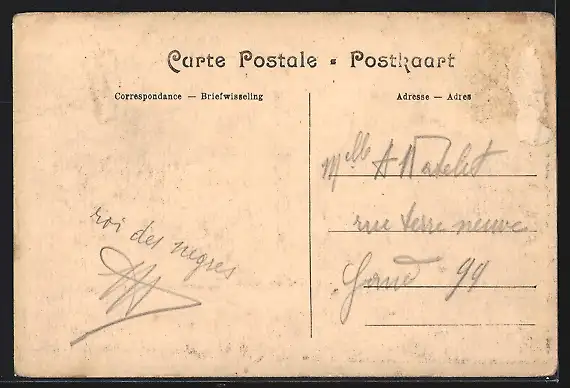 Carte Postale - Postkaart
Correspondance — Briefwisseling
Adresse — Adres
Melle A
rue terre neuve
Gand 99
roi des negres